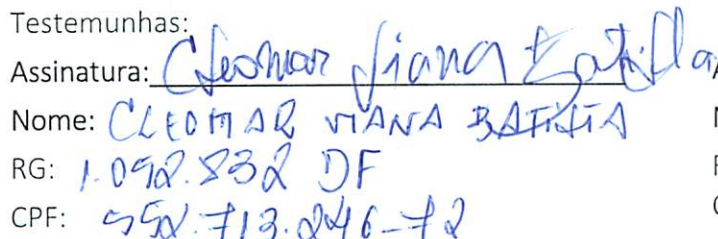 Testemunhas:
Assinatura: Cleomar Viana Batista
Nome: CLEOMAR VIANA BATISTA
RG: 1.092.832 DF
CPF: 552.713.246-72